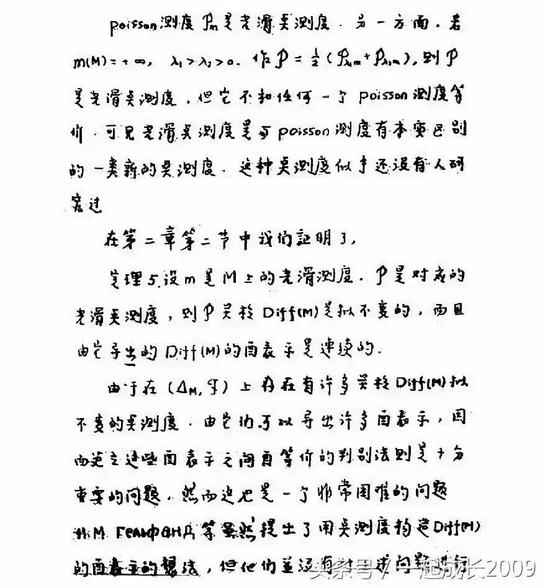 poisson测度 Pm是光滑吴测度. 另一方面. 若
m(M)=+∞, λ₁>λ₂>0. 作P=½(Pλ₁m+Pλ₂m), 则P
是光滑吴测度, 但它不和任何一个poisson测度等
价. 可见光滑吴测度是与poisson测度有本质区别
的一类新的吴测度. 这种吴测度似乎还没有人研
究过
在第二章第二节中我们証明了,
定理5 设m是M上的光滑测度. P是对应的
光滑吴测度, 则P关於Diff(M)是拟不变的, 而且
由它导出的Diff(M)的酉表示是连续的.
由于在(ΔM, 𝓕)上存在有许多关於Diff(M)拟
不变的吴测度. 由它们可以导出许多酉表示, 因
而建立这些酉表示之间酉等价的判别法则是十分
重要的问题. 然而这也是一个非常困难的问题
И.М. ГЕЛЬФАНД等虽然提出了用吴测度构造Diff(M)
的酉表示的想法, 但他们並没有
头条号/一起成长2009